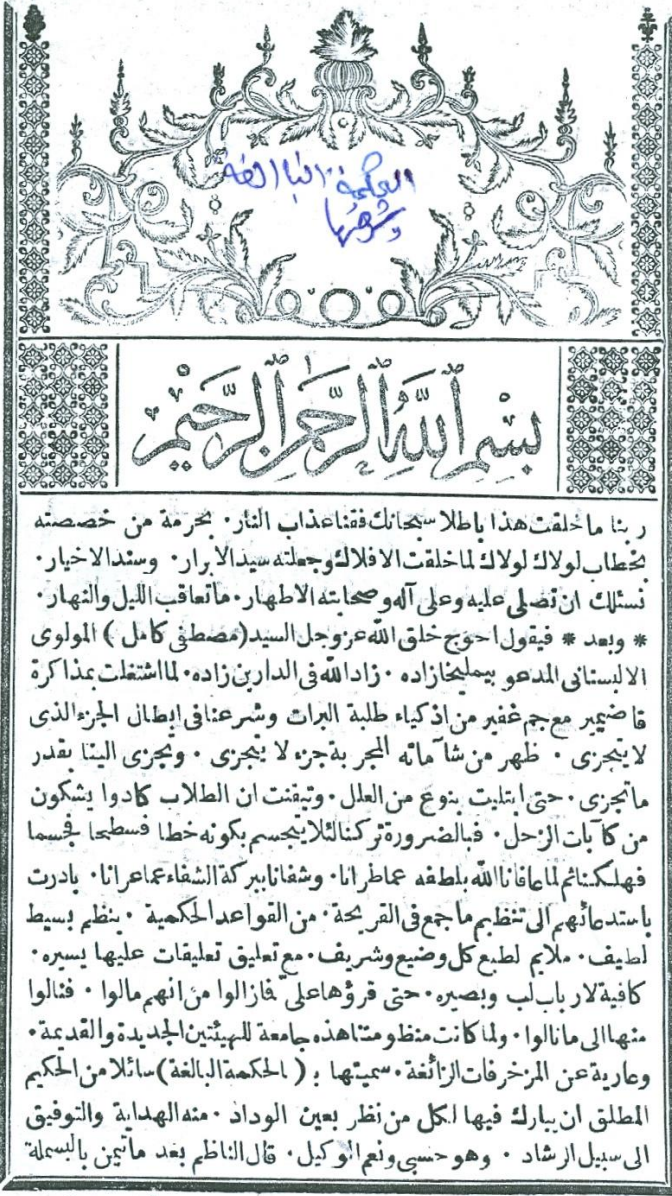 الحكمة البالغة
وشرحها
بسم الله الرحمن الرحيم
ربنا ما خلقت هذا باطلا سبحانك فقنا عذاب النار . بحرمة من خصصته
بخطاب لولاك لولاك لما خلقت الافلاك وجعلته سيد الابرار . وسند الاخيار .
نسئلك ان تصلى عليه وعلى آله وصحابته الاطهار . ما تعاقب الليل والنهار .
* وبعد * فيقول احوج خلق الله عز وجل السيد (مصطفى كامل) المولوى
الالبستانى المدعو بيمليخازاده . زاد الله فى الدارين زاده . لما اشتغلت بمذاكرة
قاضيمير مع جم غفير من اذكياء طلبة البرات وشرعنا فى ابطال الجزء الذى
لا يتجزى . ظهر من شآماته المجربة جزء لا يتجزى . ويجزى الينا بقدر
ما تجزى . حتى ابتليت بنوع من العلل . وتيقنت ان الطلاب كادوا يشكون
من كآبات الزحل . فبالضرورة تركنا لئلا يتجسم بكونه خطا فسطحا فجسما
فهلكنا ثم لما عافانا الله بلطفه عما طرانا . وشفانا ببركة الشفاء عما عرانا . بادرت
باستدعائهم الى تنظيم ما جمع فى القريحة . من القواعد الحكمية . بنظم بسيط
لطيف . ملايم لطبع كل وضيع وشريف . مع تعليق تعليقات عليها يسيره .
كافية لارباب لب وبصيره . حتى قرؤها على فازالوا من انهم مالوا . فنالوا
منها الى ما نالوا . ولما كانت منظومتنا هذه جامعة للهيئتين الجديدة والقديمة .
وعارية عن المزخرفات الزائغة . سميتها بـ (الحكمة البالغة) سائلا من الحكيم
المطلق ان يبارك فيها لكل من نظر بعين الوداد . منه الهداية والتوفيق
الى سبيل الرشاد . وهو حسبى ونعم الوكيل . قال الناظم بعد ما تيمن بالبسملة